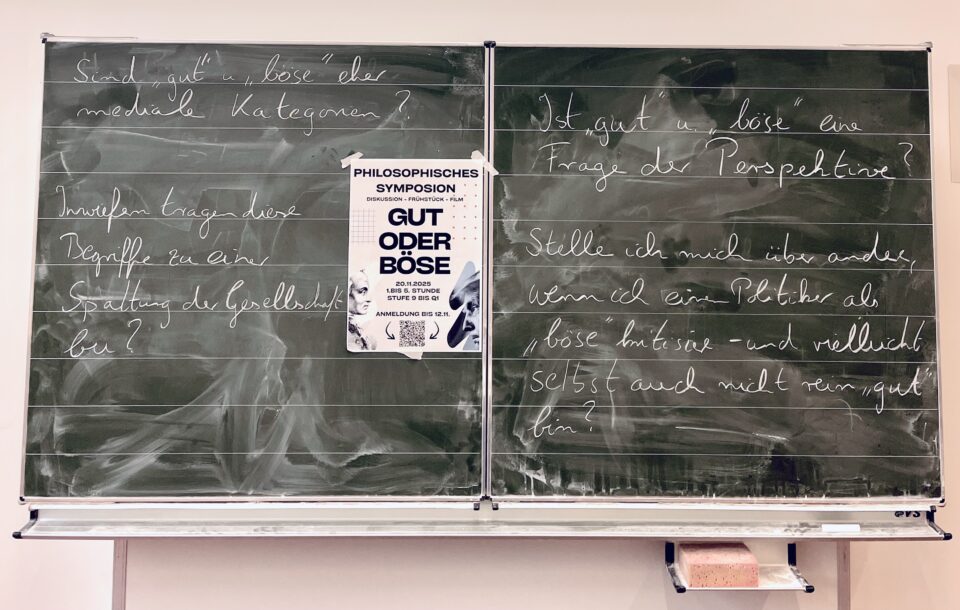 Sind „gut" u „böse" eher
mediale Kategorien?
Inwiefern tragen diese
Begriffe zu einer
Spaltung der Gesellschaft
bei?
PHILOSOPHISCHES
SYMPOSION
DISKUSSION - FRÜHSTÜCK - FILM
GUT
ODER
BÖSE
20.11.2025
1.BIS 5. STUNDE
STUFE 9 BIS Q1
ANMELDUNG BIS 12.11.
Ist „gut" u. „böse" eine
Frage der Perspektive?
Stelle ich mich über andere,
wenn ich einen Politiker als
„böse" kritisiere - und vielleicht
selbst auch nicht rein „gut"
bin?